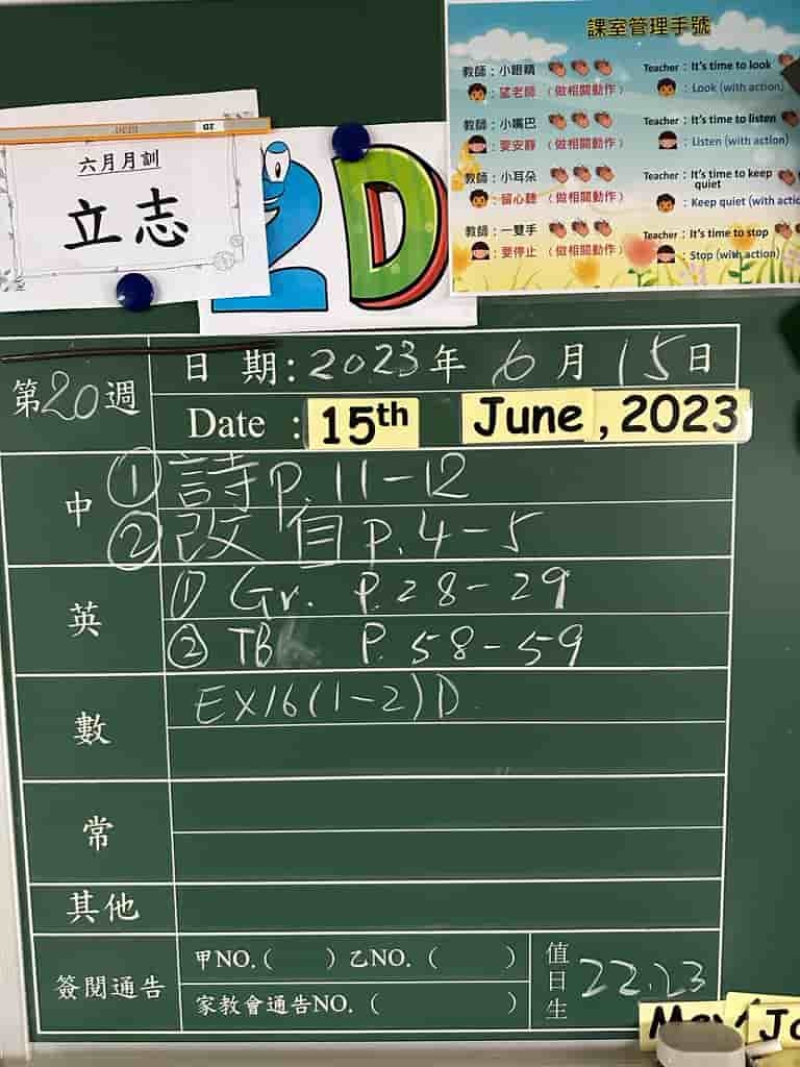 課室管理手號
教師：小眼睛
：望老師（做相關動作）
Teacher：It's time to look
：Look (with action)
教師：小嘴巴
：要安靜（做相關動作）
Teacher：It's time to listen
：Listen (with action)
教師：小耳朵
：留心聽（做相關動作）
Teacher：It's time to keep
quiet
：Keep quiet (with actio
教師：一雙手
：要停止（做相關動作）
Teacher：It's time to stop
：Stop (with action)
2D
六月月訓
立志
2D
第20週
日 期：2023年 6月 15日
Date : 15th June, 2023
中
① 詩 p. 11-12
② 改 自 p. 4-5
英
① Gr. P. 28-29
② TB P. 58-59
數
EX16(1-2)D
常
其他
簽閱通告
甲NO.( ) 乙NO. ( )
家教會通告NO. ( )
值日生
22.23